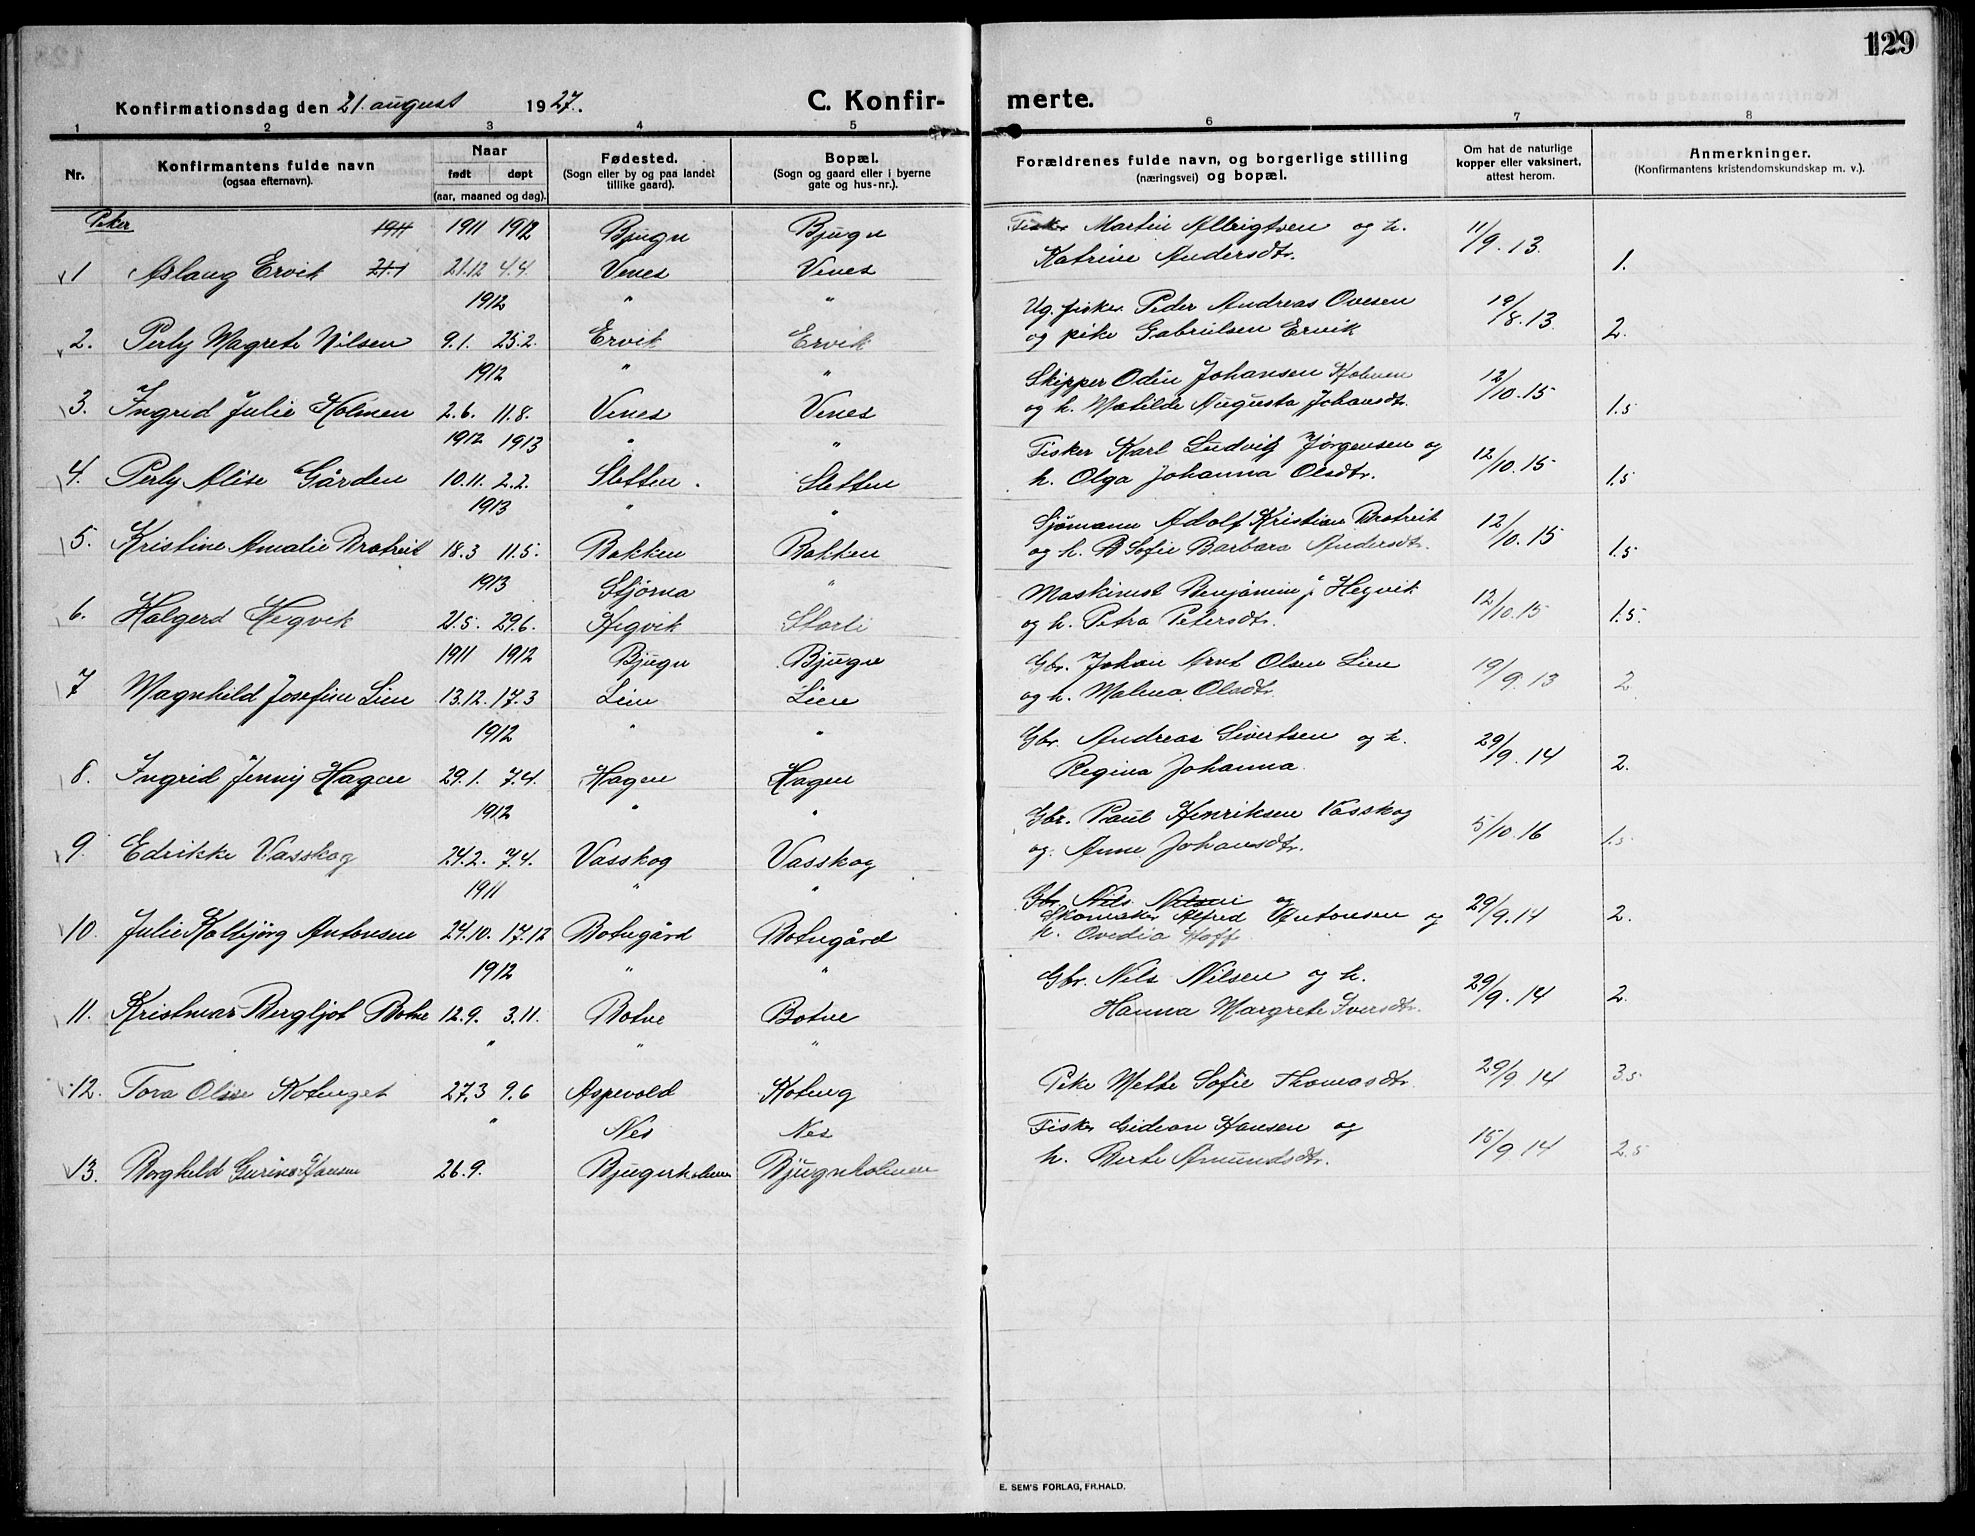 129
Konfirmationsdag den 21. august 1927. C. Konfir- merte.
1 2 3 4 5 6 7 8
Nr. Konfirmantens fulde navn (ogsaa efternavn). Naar født døpt (aar, maaned og dag). Fødested. (Sogn eller by og paa landet tillike gaard). Bopæl. (Sogn og gaard eller i byerne gate og hus-nr.). Forældrenes fulde navn, og borgerlige stilling (næringsvei) og bopæl. Om hat de naturlige kopper eller vaksinert, attest herom. Anmerkninger. (Konfirmantens kristendomskundskap m. v.).
Piker 1911 1911 1912 Bjugn Bjugn Fisker Martin Albrigtsen og h. 11/9.13.
1 Aslaug Ervik 21.12 4.4 Vines Vines Katrine Andersdtr. 1.
1912 " " Ug. fisker Peder Andreas Ovesen 19/8.13.
2. Perly Magrete Nilsen 9.1. 25.2. Ervik Ervik og pike Gabrielsen Ervik 2.
1912 " " Skipper Odin Johansen Holmen 12/10.15
3. Ingrid Julie Holmen 2.6. 11.8. Vines Vines og h. Matilde Augusta Johansdtr. 1.5
1912 1913 " " Fisker Karl Ludvig Jørgensen og 12/10.15
4. Perly Alise Gården 10.11. 2.2. Sletten. Sletten h. Olga Johanna Olsdtr. 1.5
1913 " " Sjømann Adolf Kristian Brotreit 12/10.15
5. Kristine Amalie Brotreit 18.3 11.5. Bakken Bakken og h. B Sofie Barbara Andersdtr. 1.5
1913 Stjørna " Maskinist Benjamin J. Hegvik 12/10.15
6. Halgerd Hegvik 21.5. 29.6. Hegvik Storli og h. Petra Petersdtr. 1.5.
1911 1912 Bjugn Bjugn Gbr. Johan Arnt Olsen Lien 19/9.13
7 Magnhild Josefine Lien 13.12. 17.3 Lien Lien og h. Malena Olsdtr. 2
1912 " " Gbr. Andreas Sivertsen og h. 29/9.14
8. Ingrid Jenny Hagen 29.1. 7.4. Hagen Hagen Regina Johanna 2.
1912 " " Gbr. Paul Henriksen Vasskog 5/10.16
9. Edrikke Vasskog 24.2. 7.4. Vasskog Vasskog og. Anne Johansdtr. 1.5
1911 " " Gbr. Nils Nilsen og
10. Julie Kolbjørg Antonsen 24.10. 17.12 Botngård Botngård Skomaker Alfred Antonsen og 29/9.14 2.
h. Ovedia Hoff
1912 " " Gbr. Nils Nilsen og h. 29/9.14
11. Kristmar Bergljot Botne 12.9. 3.11. Botne Botne Hanna Margrete Iversdtr. 2.
" " "
12. Tora Oline Kotenget 27.3 9.6 Aspevold Koteng Pike Mette Sofie Thomasdtr. 29/9 14 3.5
" Nes Nes Fisker Gideon Hansen og 15/9 14
13. Borghild Gurine Hansen 26.9. Bjugnholmen Bjugnholmen h. Berte Amundsdtr. 2.5
E. SEM'S FORLAG, FR.HALD.